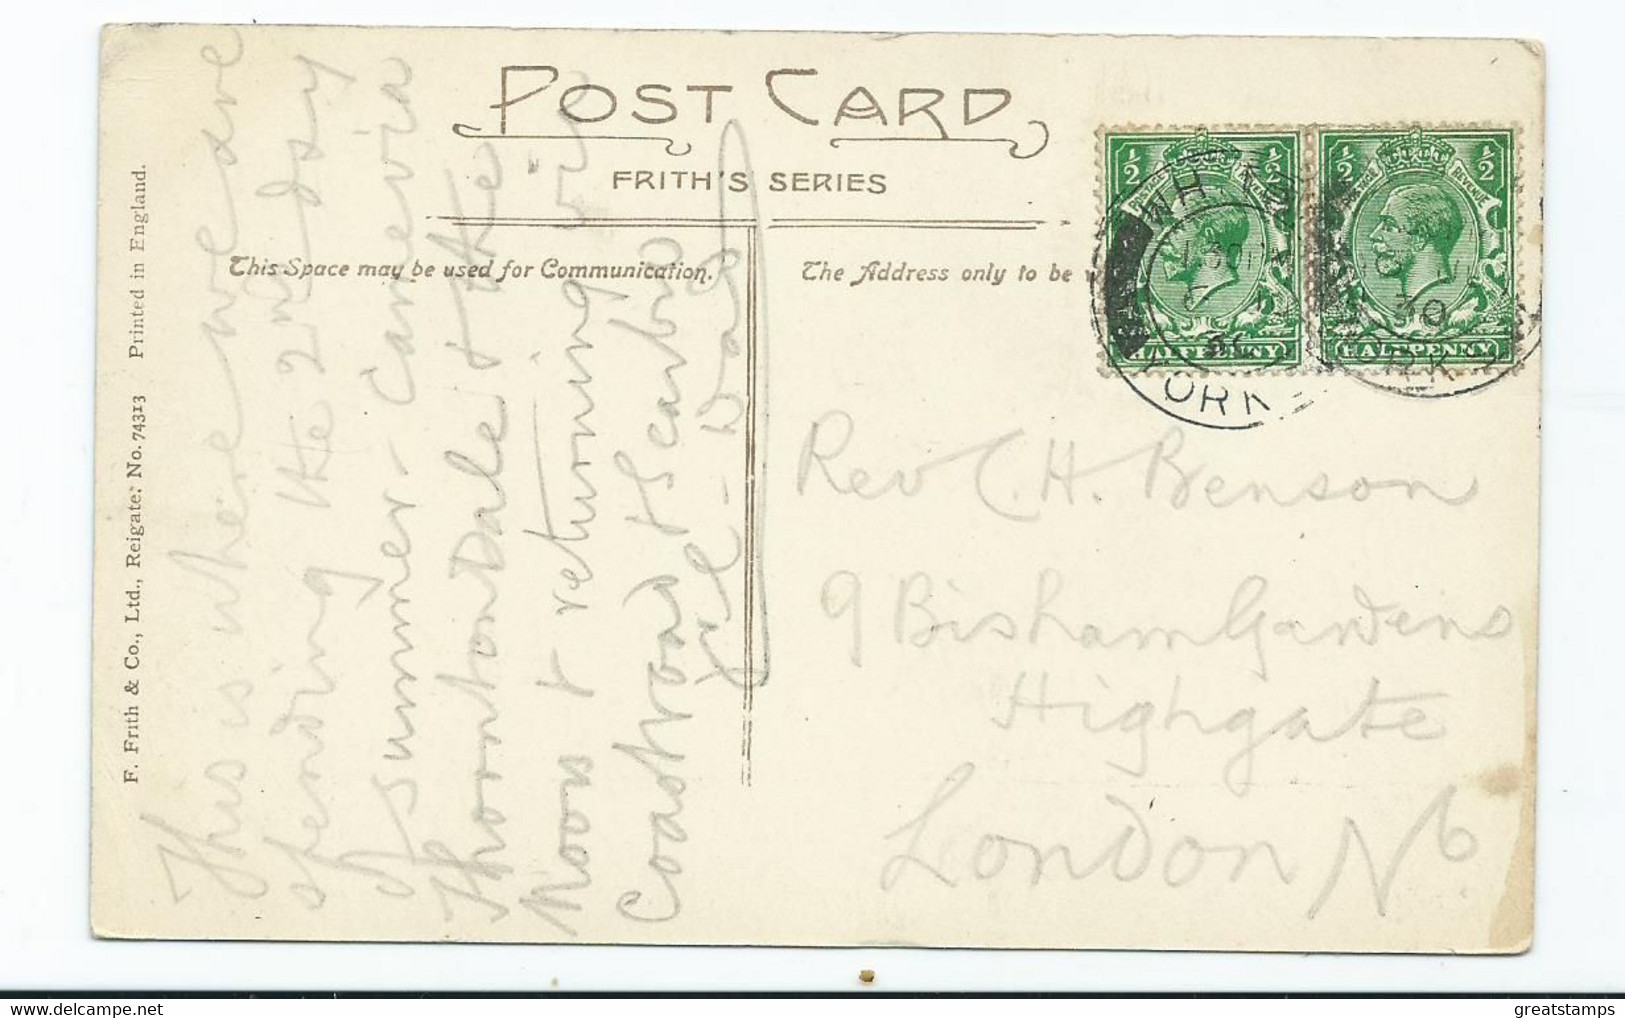 POST CARD
FRITH'S SERIES
This Space may be used for Communication.
The Address only to be
F. Frith & Co., Ltd., Reigate. No. 74313 Printed in England.
1/2 1/2
POSTAGE REVENUE
HALFPENNY
1/2 1/2
REVENUE
HALFPENNY
30
YORK
This is where we are
spending the 2nd day
of summer - Came via
Thornton Dale & the
Moors & returning via
Coast road & Scarbro
Rev C. H. Benson
9 Bisham Gardens
Highgate
London N6
greatstamps